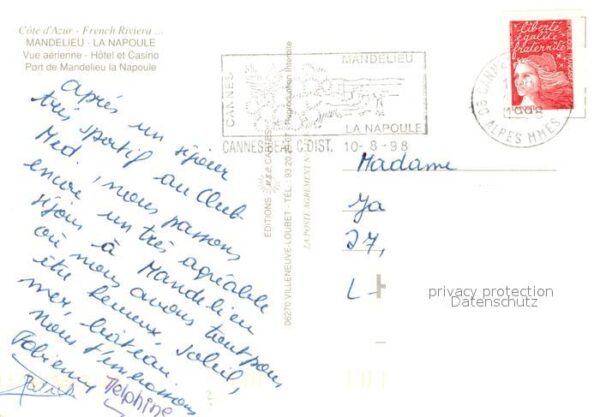 Côte d'Azur - French Riviera ...
MANDELIEU - LA NAPOULE
Vue aérienne - Hôtel et Casino
Port de Mandelieu la Napoule
Après un séjour
très sportif au Club
Med, nous passons
encore un très agréable
séjour à Mandelieu
où nous avons tout pour
être heureux, soleil,
mer, bateau.
Nous t'embrassons
Fabienne Delphine
Patrick
EDITIONS M.A.R. CANNES
06270 VILLENEUVE-LOUBET - TÉL. 93 20
Reproduction interdite
CANNES
MANDELIEU
LA NAPOULE
CANNES C. DIST. 10-8-98
06 CANN
ALPES MMES
liberté
égalité
fraternité
Madame
Ja
27,
L-
privacy protection
Datenschutz